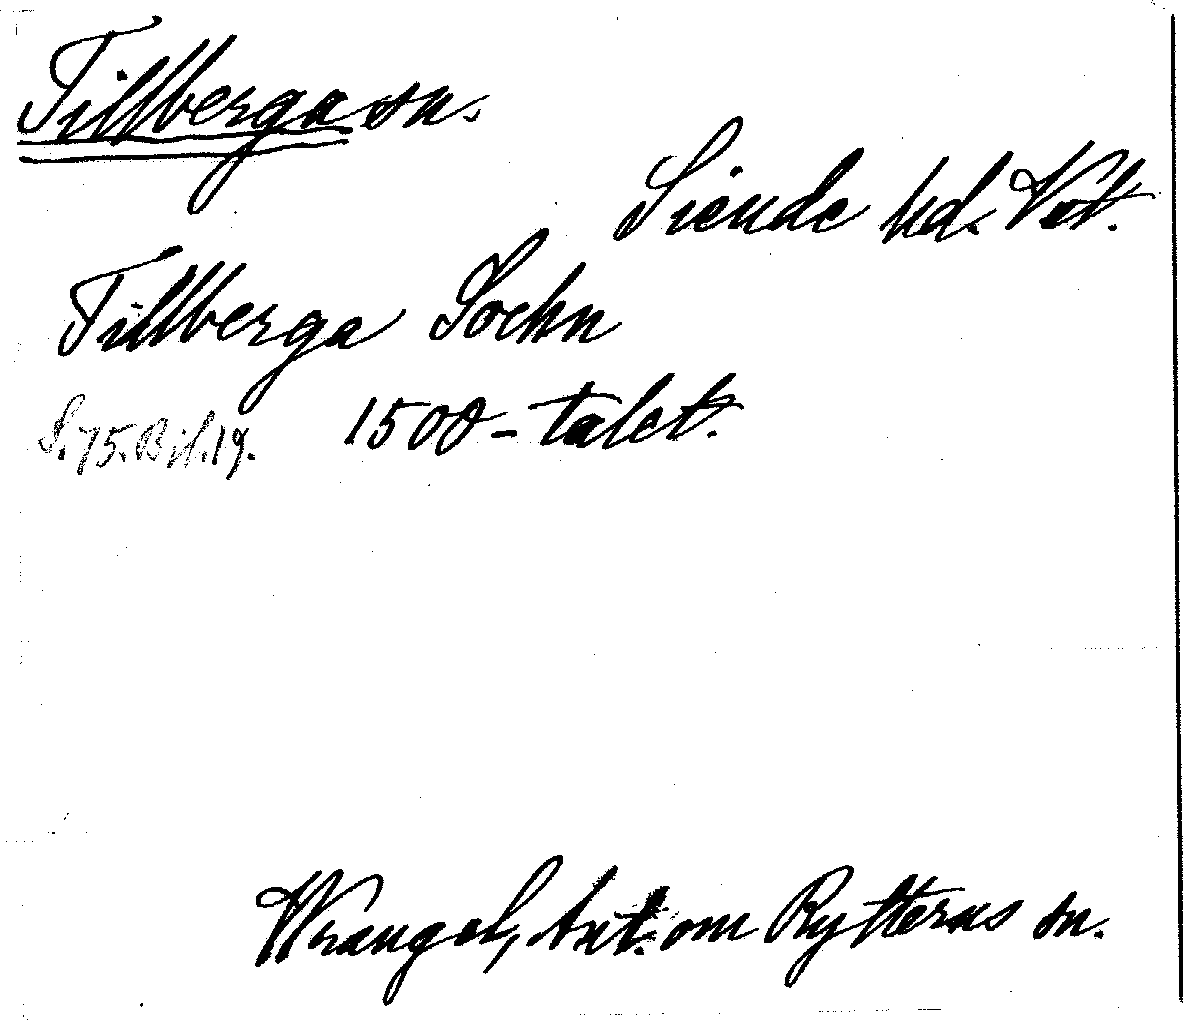 Tillberga sn.
Siende hd. Vstm.
Tillberga Sochn
S. 75. Bil. 19. 1500-talet.
Wrangel, Ant. om Rytterns sn.